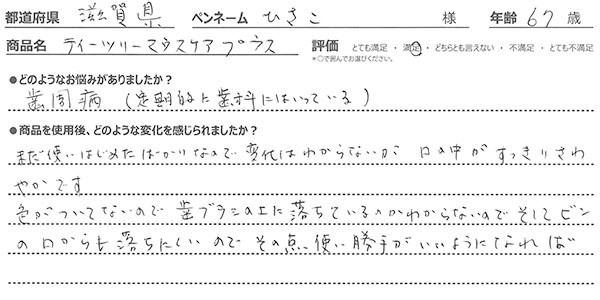 都道府県 滋賀県 ペンネーム ひさこ 様 年齢 67 歳
商品名 ティーツリーマウスケアプラス 評価 とても満足 ・ 満足 ・ どちらとも言えない ・ 不満足 ・ とても不満足
*○で囲んでお選びください。
●どのようなお悩みがありましたか?
歯周病 (定期的に歯科にはいっている)
●商品を使用後、どのような変化を感じられましたか?
まだ使いはじめたばかりなので変化はわからないが 口の中がすっきりさわ
やかです
色がついてないので 歯ブラシの上に落ちているのかわからないので そして ビン
の口からも落ちにくいので その点、使い勝手がいいようになれば